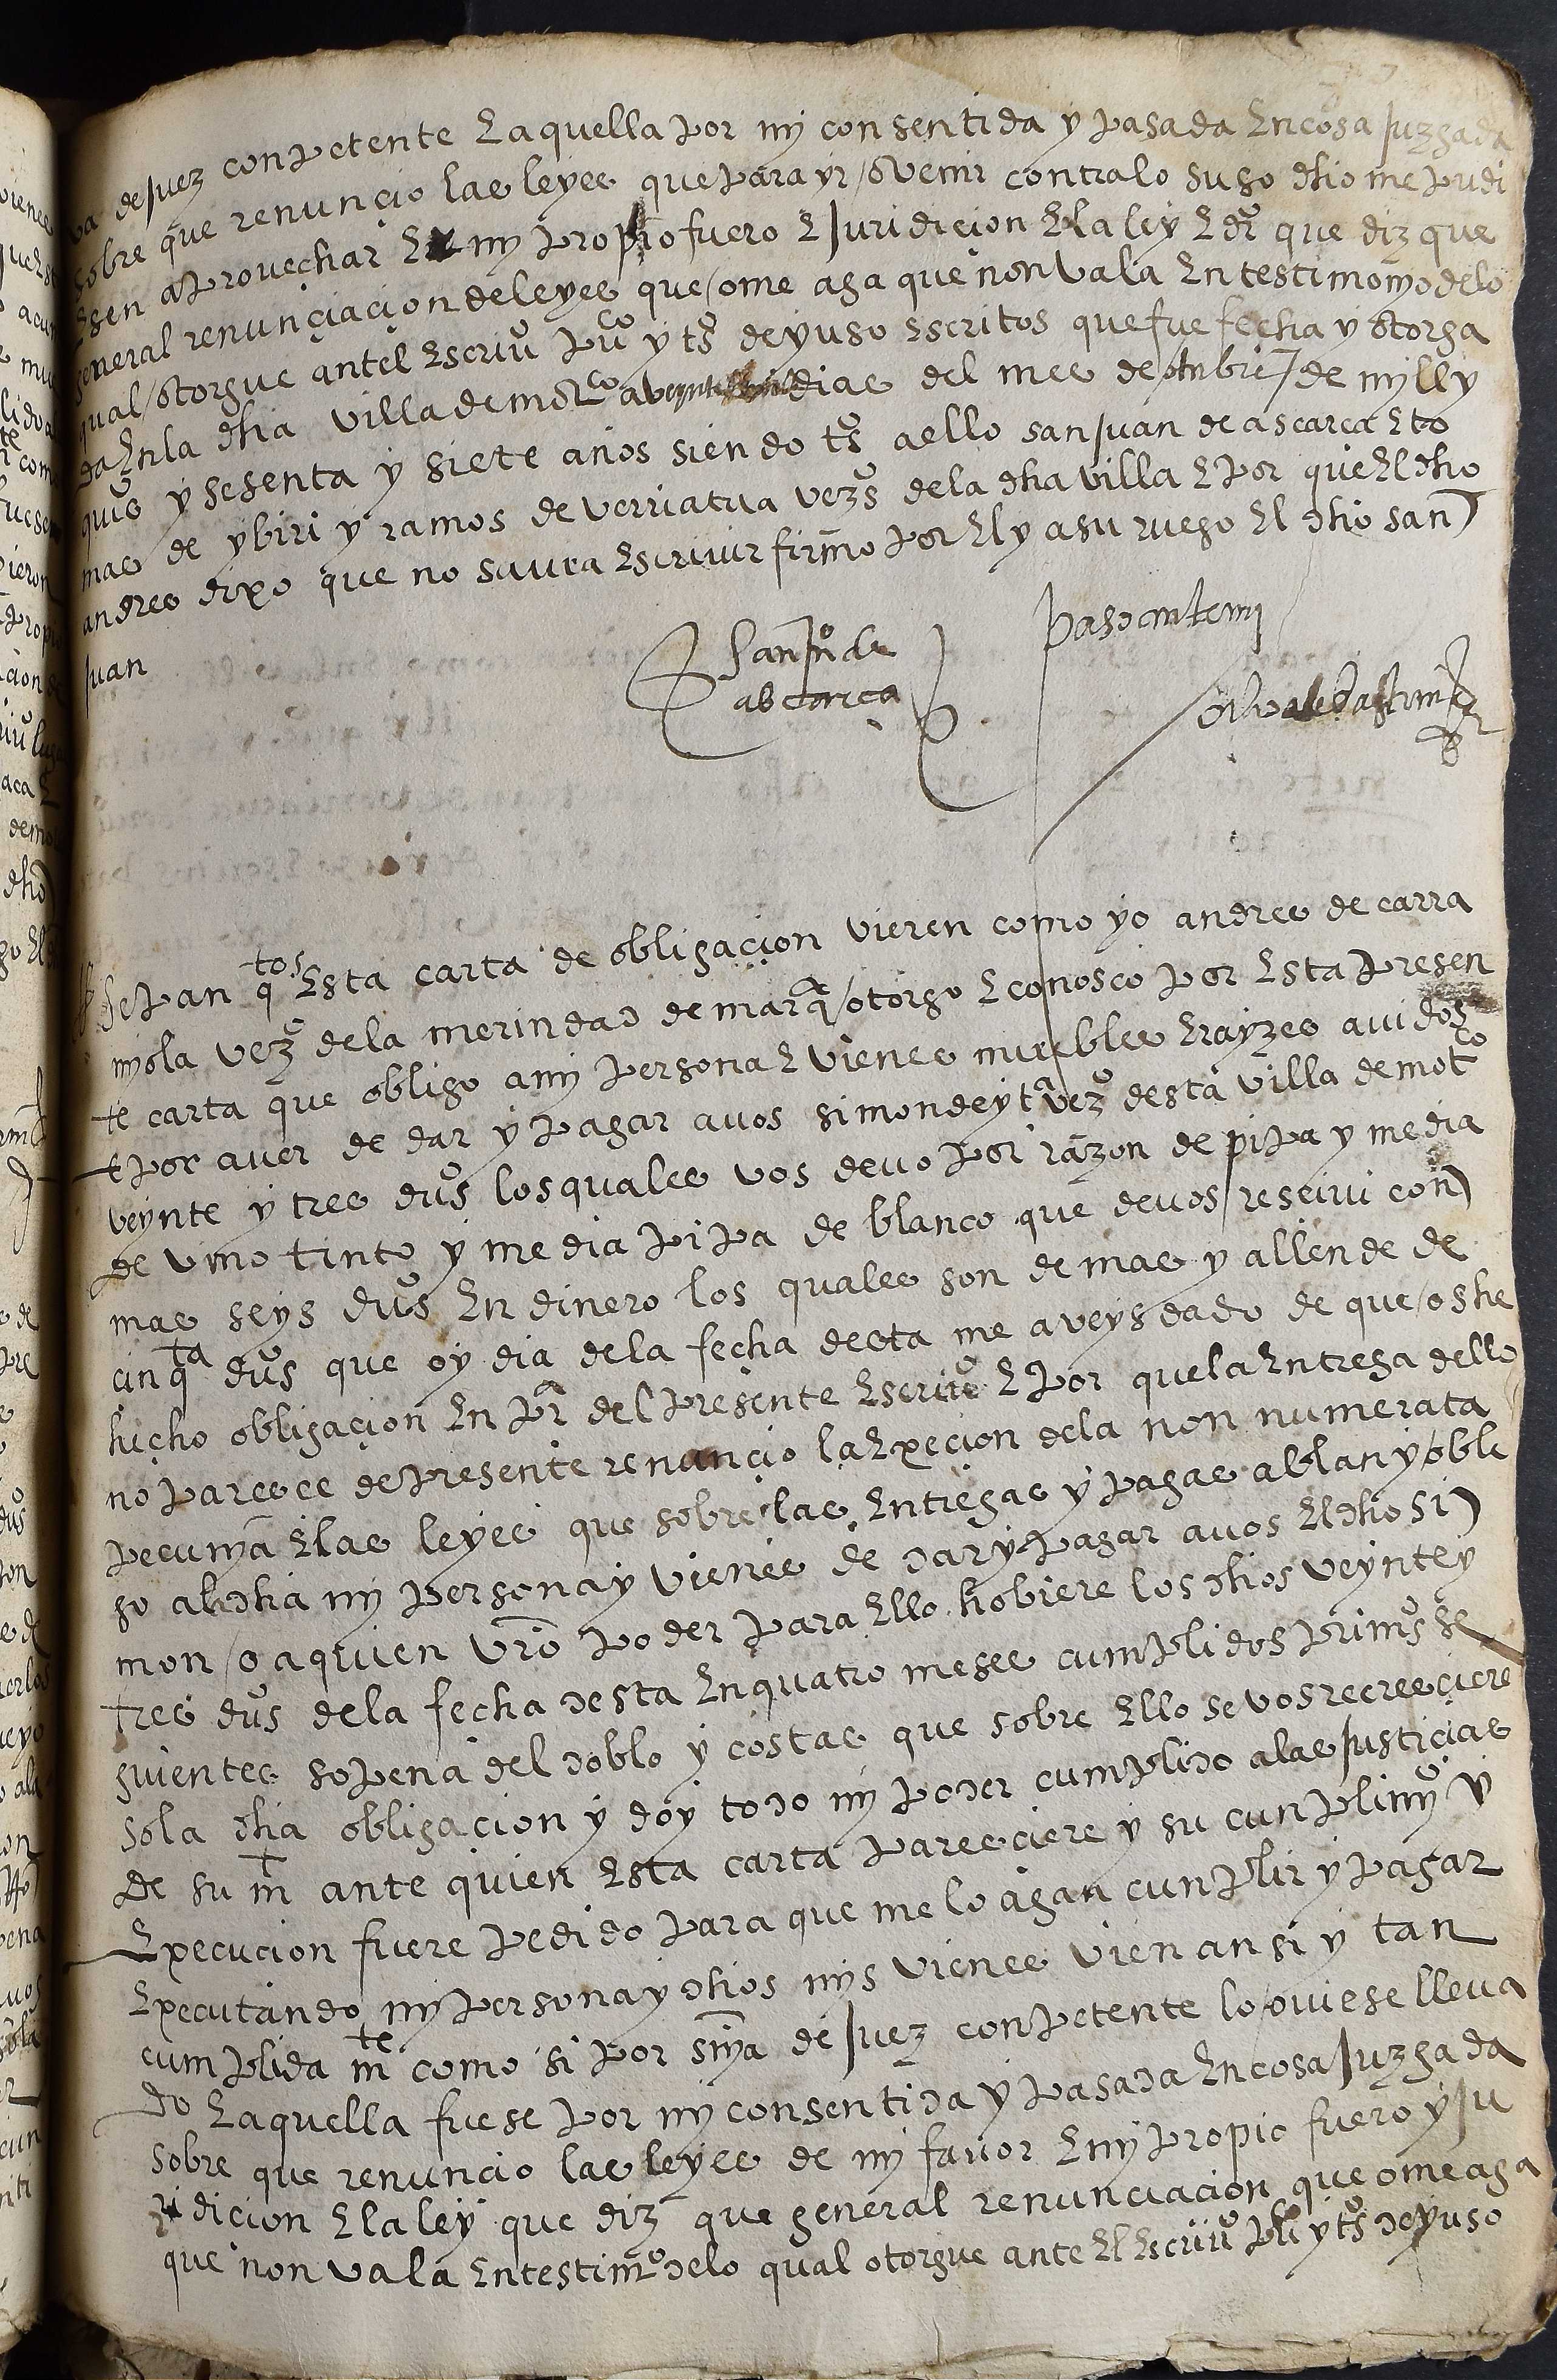 va de juez conpetente E aquella por my consentida y pasada En cosa juzgada
sobre que renunçio las leyes que para yr / o venir contra lo suso dho me pudi
Esen aprovechar E my propio fuero E juridicion E la ley E dro que diz que
general renunçiaçion de leyes que / ome aga que non vala En testimonyo de lo
qual / otorgue antel Escriuo puco y tos de yuso Escritos que fue fecha y otorga
da En la dha villa de motco a veynte dias del mes de otubre / de mill y
quis y sesenta y siete años siendo tos a ello san juan de ascarca E to
mas de ybiri y ramos de verriatua vezos de la dha villa E por que El dho
andres dixo que no savia Escrivir firmo por El y a su ruego El dho san
juan
san juo de
abcarca
paso ante my
Sepan qtos Esta carta de obligaçion vieren como yo andres de carra
myola vezo de la merindad de marqa / otorgo E conosco por Esta presen
te carta que obligo a my persona E vienes muebles E rayzes avidos
E por aver de dar y pagar a vos simon de yta vezo desta villa de motco
veynte y tres dus los quales vos devo por razon de pipa y media
de vino tinto y media pipa de blanco que de vos / resciui con
mas seys dus En dinero los quales son de mas y allende de
cinqta dus que oy dia de la fecha desta me aveys dado de que / os he
hecho obligaçion En pra del presente Escriuo E por que la Entrega dello
no paresce de presente renunçio la Expeçion de la non numerata
pecunya E las leyes que sobre las Entregas y pagas ablan y / obli
go a la dha my persona y vienes de dar y pagar a vos El dho si
mon / o a quien vro poder para Ello hobiere los dhos veynte y
tres dus de la fecha desta En quatro meses cumplidos primos se
guientes so pena del doblo y costas que sobre Ello se vos recresçiere
so la dha obligacion y doy todo my poder cumplido a las justicias
de su mt ante quien Esta carta paresciere y su cunplimyo y
Execucion fuere pedido para que me lo agan cunplir y pagar
Executando my persona y dhos mys vienes vien ansi y tan
cumplida mte como si por snya de juez conpetente lo / oviese lleva
do E aquella fuese por my consentida y pasada En cosa juzgada
sobre que renuncio las leyes de my favor E my propio fuero y ju
ridicion E la ley que diz que general renunciacion que ome aga
que non vala En testimo de lo qual otorgue ante El Escriuo puco y tos de yuso